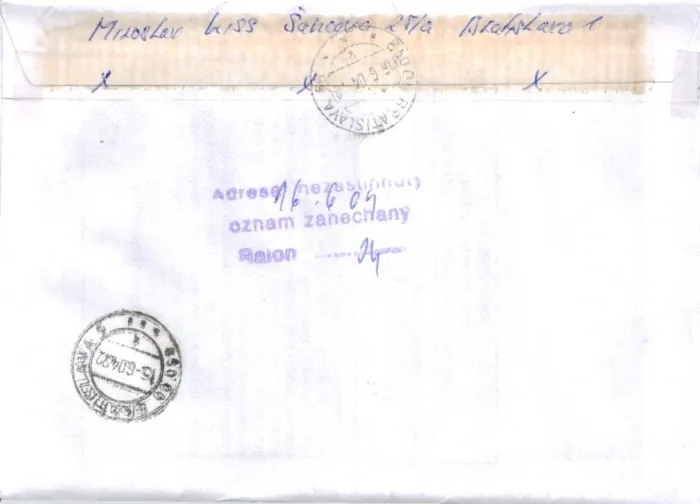 Miroslav Kiss Šancova 25/a Bratislava 1
X X X
BRATISLAVA 16.6.04
Adresát nezastihnutý
16.6.04
oznam zanechaný
Raion
BRATISLAVA 5 850 00
15.-6.04.22